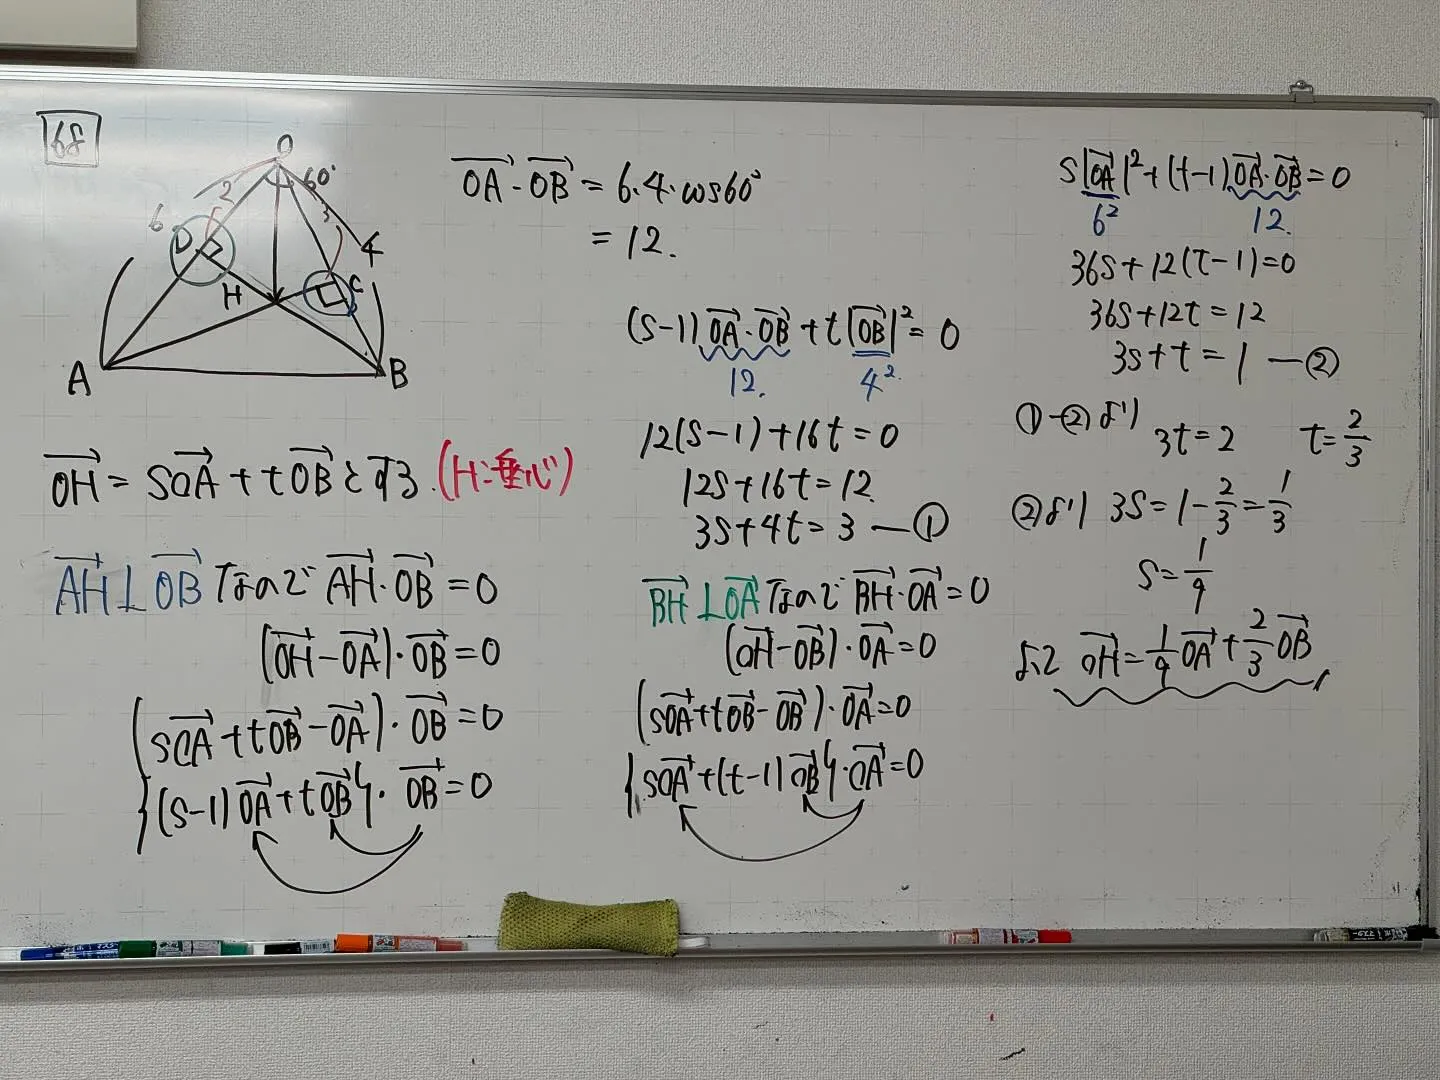 68
O
60°
2
3
6
4
D
C
H
A
B
→OH = s→OA + t→OBとする.(H:垂心)
→AH⊥→OBなので→AH・→OB = 0
(→OH-→OA)・→OB = 0
(s→OA + t→OB-→OA)・→OB = 0
{(s-1)→OA + t→OB}・→OB = 0
→OA・→OB = 6・4・cos60°
= 12.
(s-1)→OA・→OB + t|→OB|² = 0
12. 4²
12(s-1) + 16t = 0
12s + 16t = 12.
3s + 4t = 3 ―①
→BH⊥→OAなので→BH・→OA = 0
(→OH-→OB)・→OA = 0
(s→OA + t→OB-→OB)・→OA = 0
{s→OA + (t-1)→OB}・→OA = 0
s|→OA|² + (t-1)→OA・→OB = 0
6² 12.
36s + 12(t-1) = 0
36s + 12t = 12
3s + t = 1 ―②
①-②より 3t = 2 t = 2/3
②より 3s = 1 - 2/3 = 1/3
s = 1/9
よって →OH = 1/9→OA + 2/3→OB